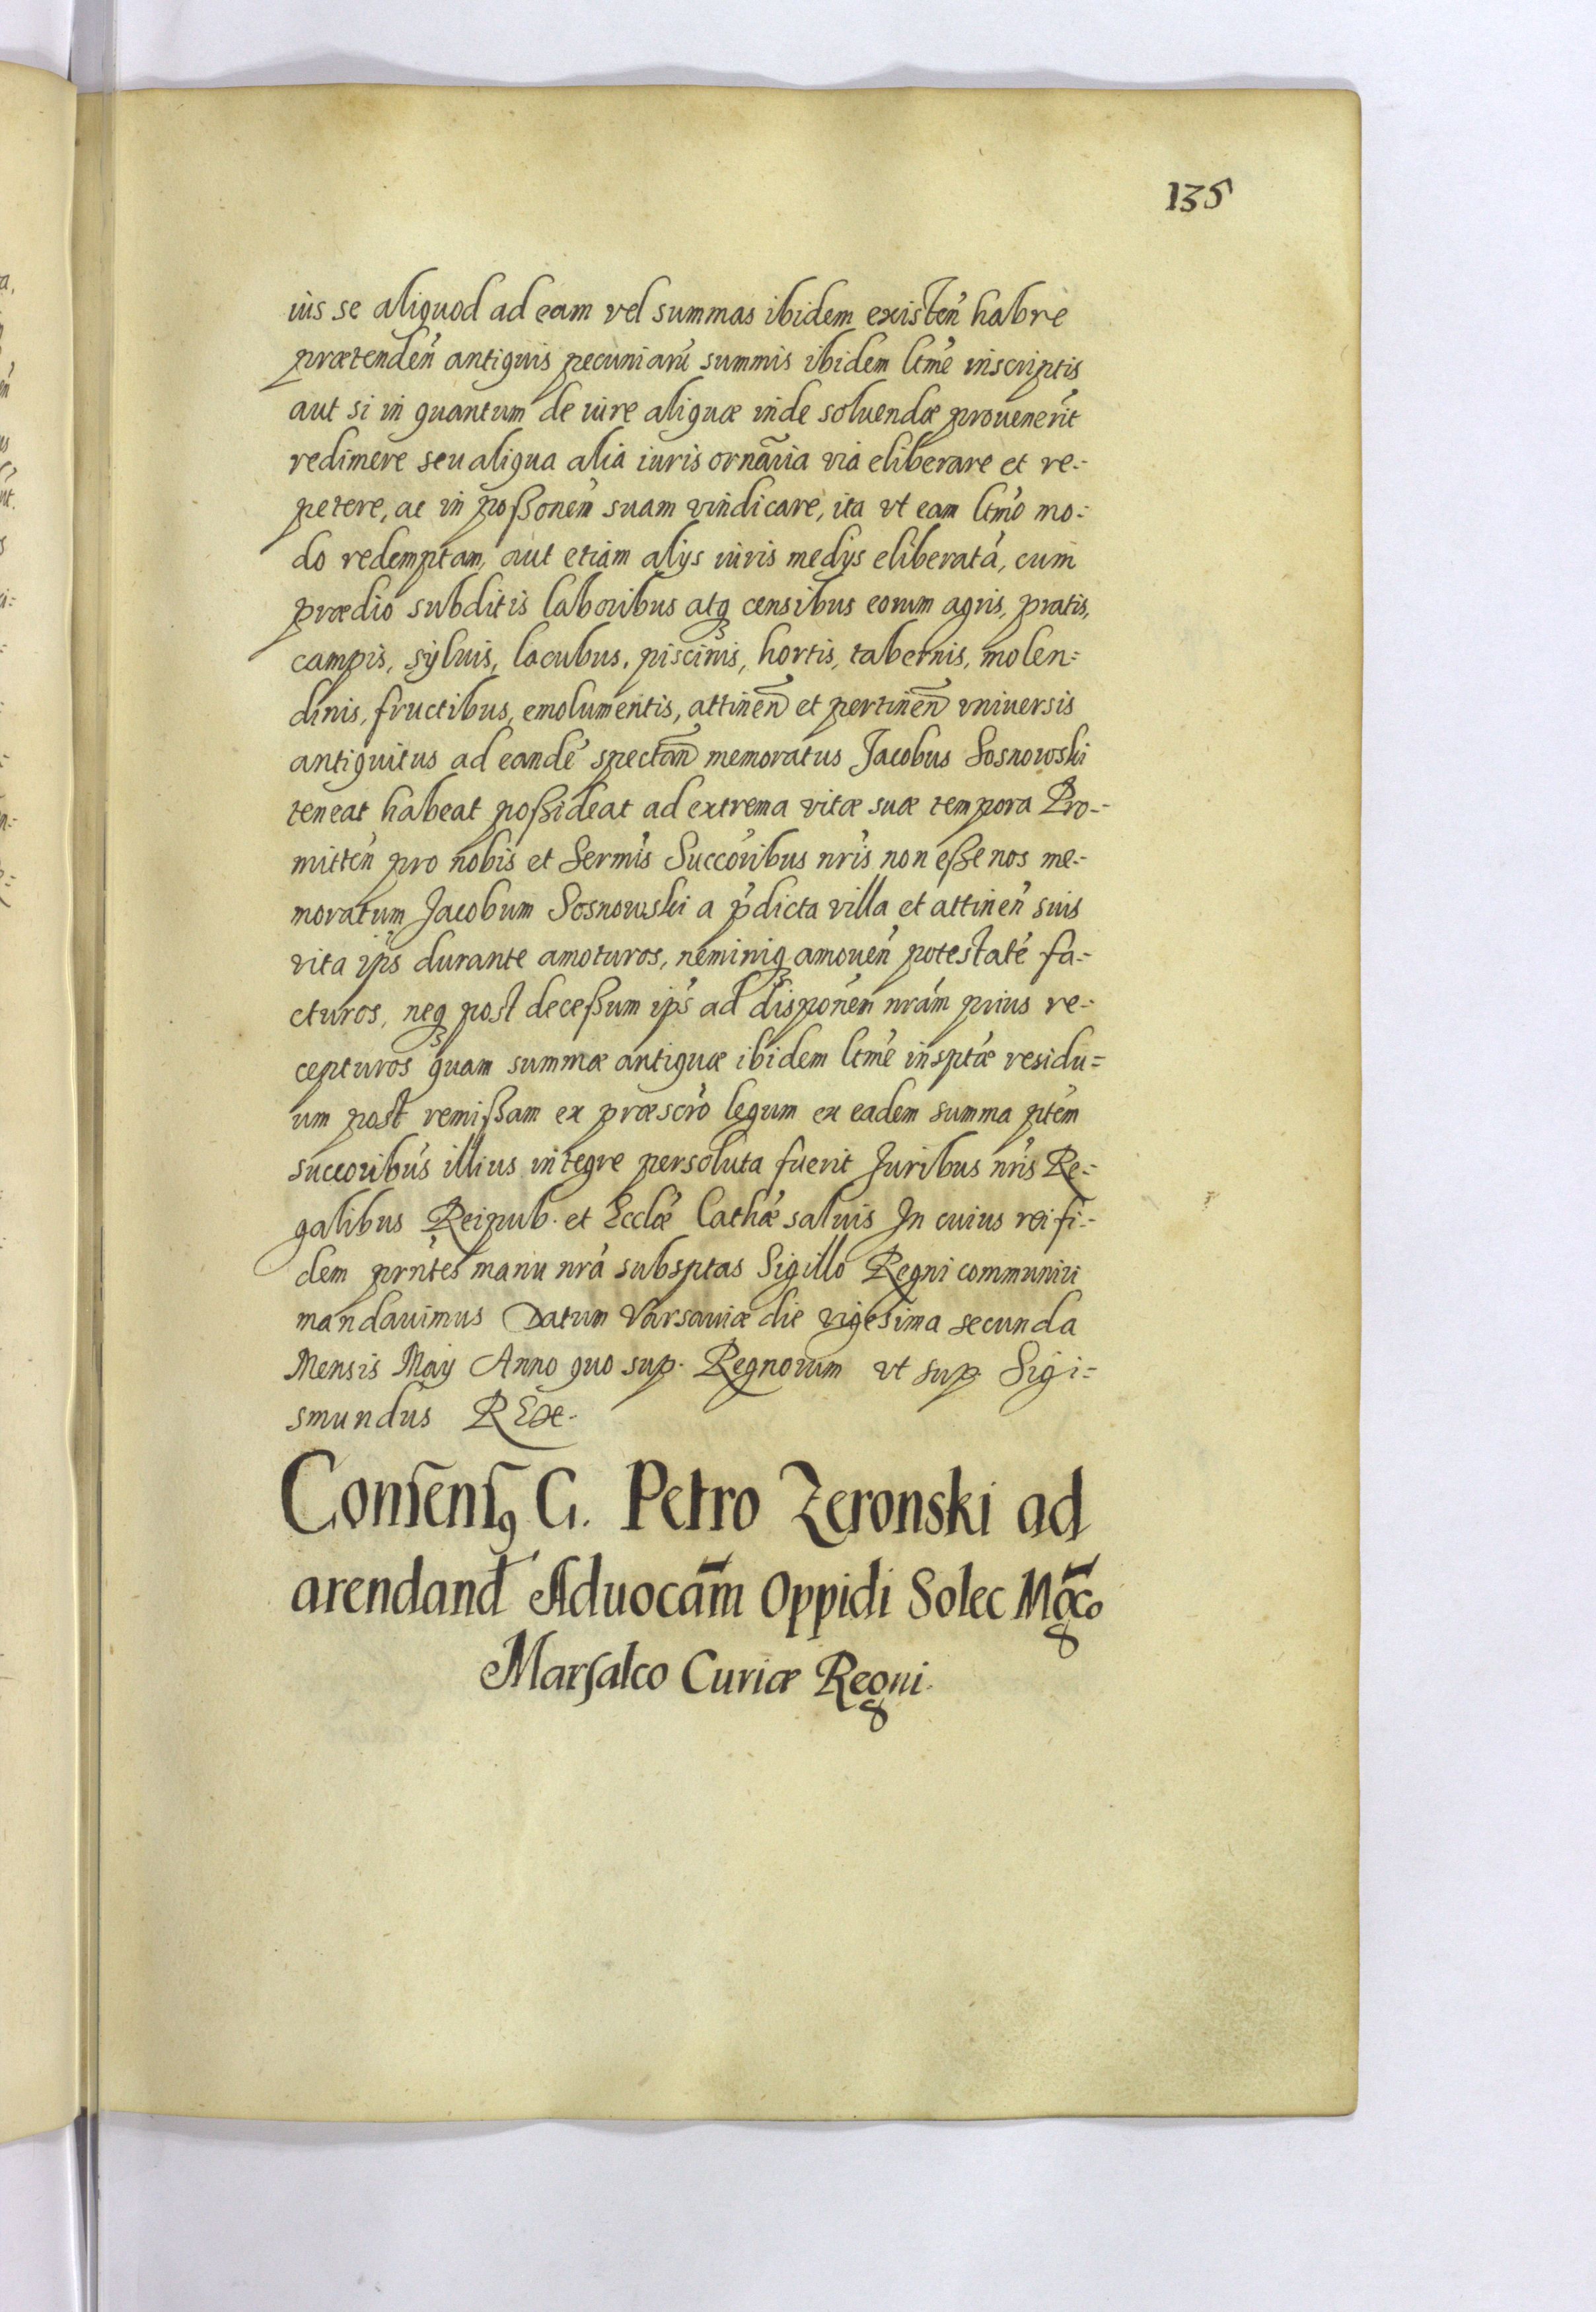 135
ius se aliquod ad eam vel summas ibidem existeń habre
prætendeń antiquis pecuniarũ summis ibidem ltm̃e inscriptis
aut si in quantum de iure aliquæ inde soluendæ prouenerit
redimere seu aliqua alia iuris ornãria via eliberare et re-
petere, ac in poßonem̃ suam vindicare, ita vt eam ltm̃o mo-
do redemptam, aut etiam alijs iuris medijs eliberatã, cum
prædio subditis laboribus atqꝫ censibus eorum agris, pratis,
campis, syluis, lacubus, piscinis, hortis, tabernis, molen-
dinis, fructibus, emolumentis, attineñ et pertineñ vniuersis
antiquitus ad eandẽ spectañ memoratus Jacobus Sosnowski
teneat habeat poßideat ad extrema vitæ suæ tempora Pro-
mitteń pro nobis et Serm̃is Succoribus nr̃is non eße nos me-
moratum Jacobum Sosnowski a p̃dicta villa et attineń suis
vita ip̃s durante amoturos, neminiqꝫ amoueń potestatẽ fa-
cturos, neqꝫ post deceßum ip̃s ad disponem̃ nrãm prius re-
cepturos quam summæ antiquæ ibidem ltm̃e insptæ residu-
um post remißam ex præscr̃o legum ex eadem summa ptẽm
succoribus illius integre persoluta fuerit Juribus nr̃is Re-
galibus Reipub. et Ecclæ̃ Cathæ̃ saluis In cuius rei fi-
dem prñtes manu nrã subsptas Sigillo Regni communiri
mandauimus Datum Varsauiæ die vigesima secunda
Mensis Maij Anno quo sup. Regnorum vt sup. Sigi-
smundus REx.
Consensꝰ G. Petro Zeronski ad
arendand̃ Aduocam̃ Oppidi Solec Mgc̃o
Marsalco Curiæ Regni.